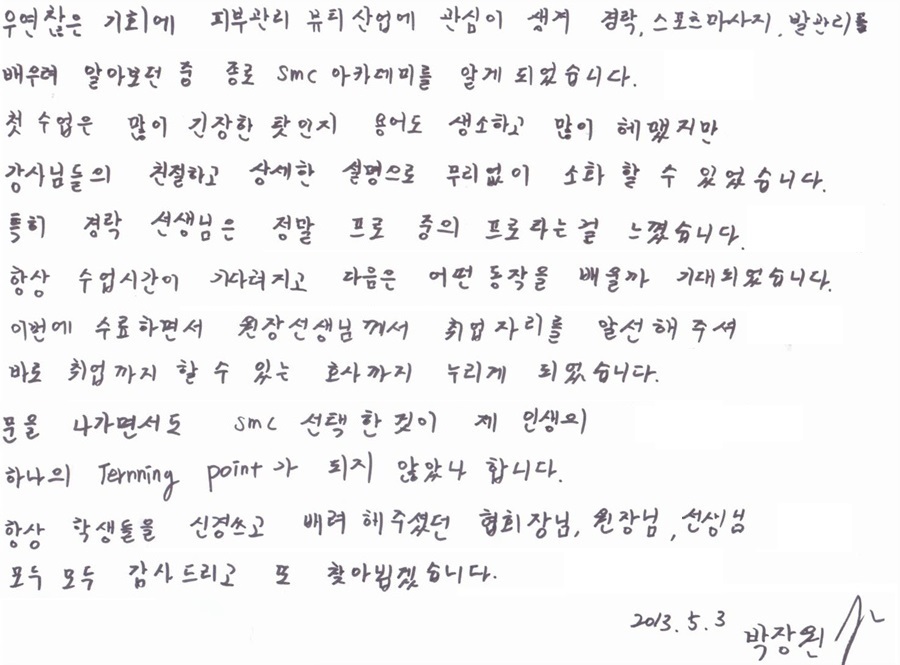 우연찮은 기회에 피부관리 뷰티산업에 관심이 생겨 경락, 스포츠마사지, 발관리를
배우려 알아보던 중 종로 smc 아카데미를 알게 되었습니다.
첫 수업은 많이 긴장한 탓인지 용어도 생소하고 많이 헤맸지만
강사님들의 친절하고 상세한 설명으로 무리없이 소화 할 수 있었습니다.
특히 경락 선생님은 정말 프로 중의 프로라는걸 느꼈습니다.
항상 수업시간이 기다려지고 다음은 어떤 동작을 배울까 기대되었습니다.
이번에 수료하면서 원장선생님께서 취업자리를 알선해 주셔
바로 취업까지 할 수 있는 호사까지 누리게 되었습니다.
문을 나가면서도 smc 선택한 것이 제 인생의
하나의 Ternning point가 되지 않았나 합니다.
항상 학생들을 신경쓰고 배려 해주셨던 협회장님, 원장님, 선생님
모두 모두 감사드리고 또 찾아뵙겠습니다.
2013. 5. 3 박장원